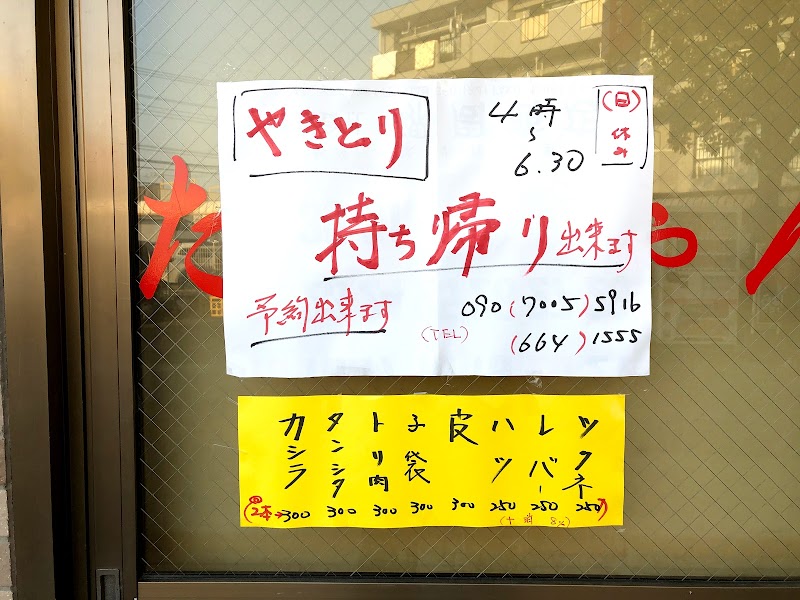 やきとり
4時〜6.30
(日)休み
持ち帰り出来ます
予約出来ます
(TEL) 090(7005)5916
(664)1555
ツクネ 250
レバー 250
ハツ 250
皮 300
子袋 300
トリ肉 300
タンシタ 300
カシラ 300
2本→
た
ん